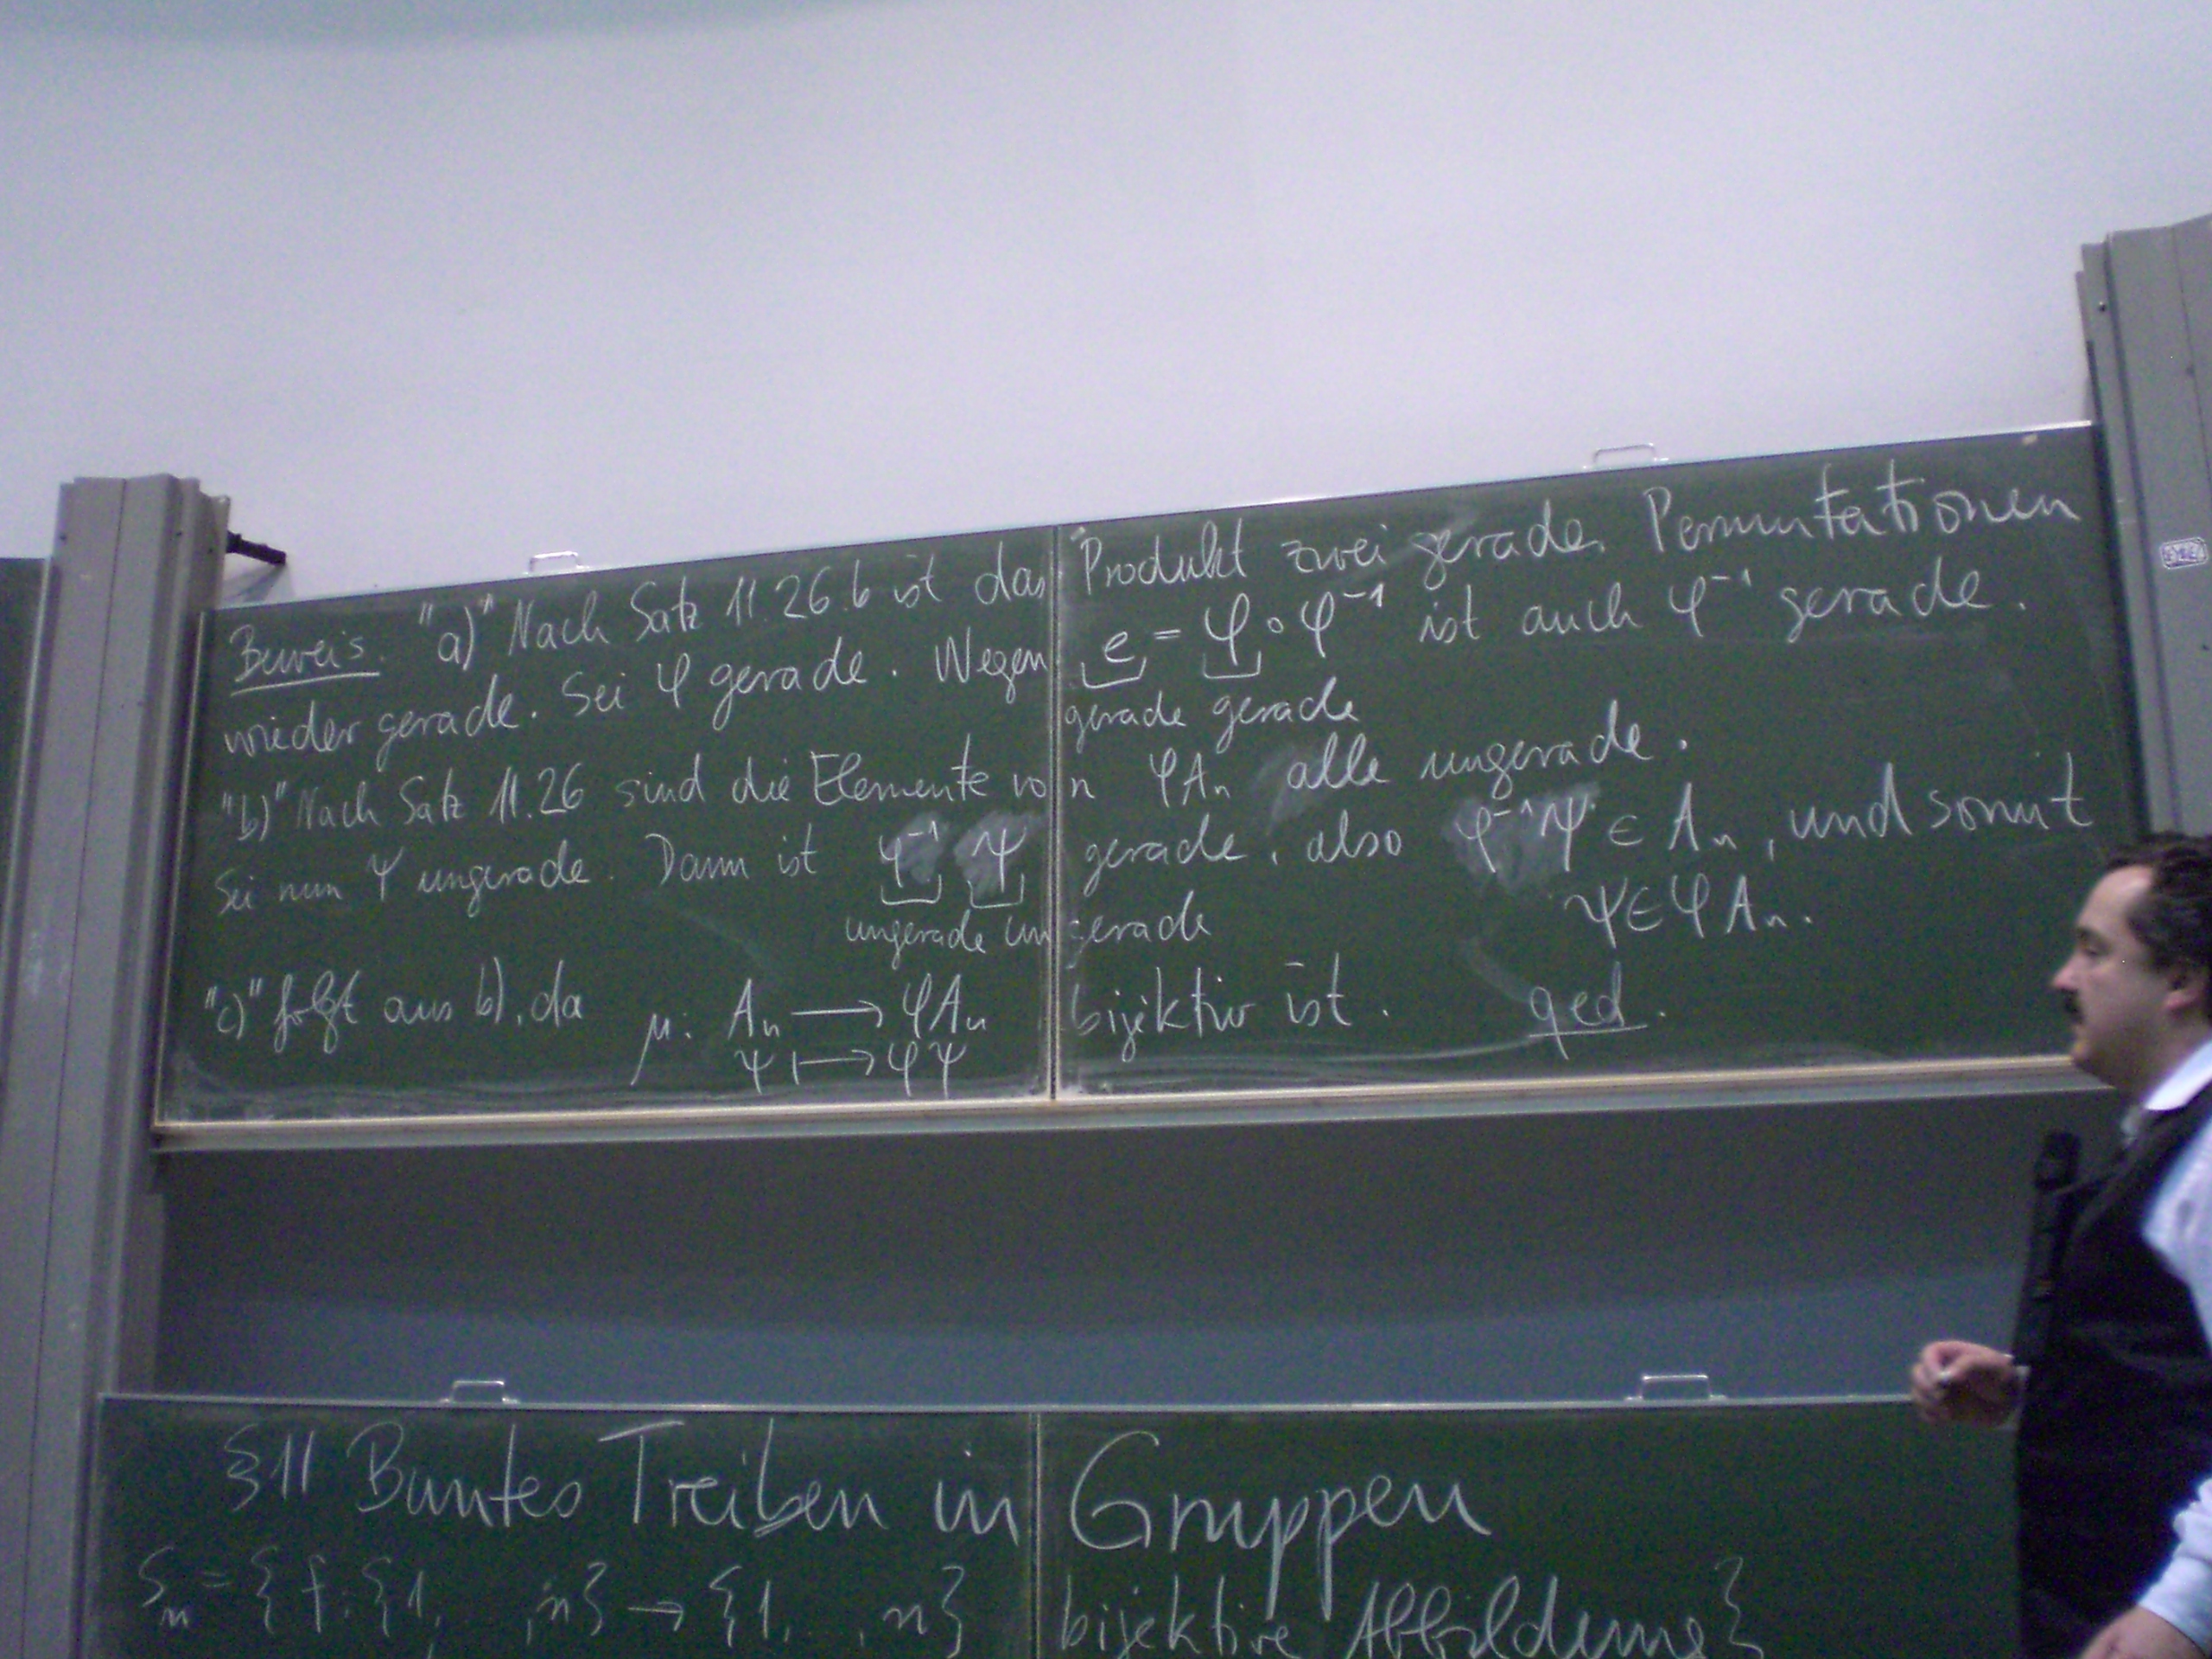 Beweis. "a)" Nach Satz 11.26.b ist das Produkt zwei gerade. Permutationen
wieder gerade. Sei φ gerade. Wegen e = φ∘φ⁻¹ ist auch φ⁻¹ gerade.
gerade gerade
"b)" Nach Satz 11.26 sind die Elemente von φAₙ alle ungerade.
Sei nun ψ ungerade. Dann ist φ⁻¹ ψ gerade, also φ⁻¹ψ ∈ Aₙ, und somit
ungerade ungerade ψ∈φAₙ.
"c)" folgt aus b), da μ: Aₙ ⟶ φAₙ bijektiv ist. qed.
ψ ⟼ φψ
§11 Buntes Treiben in Gruppen
Sₙ = {f: {1, ..., n} → {1, ..., n} bijektive Abbildung}